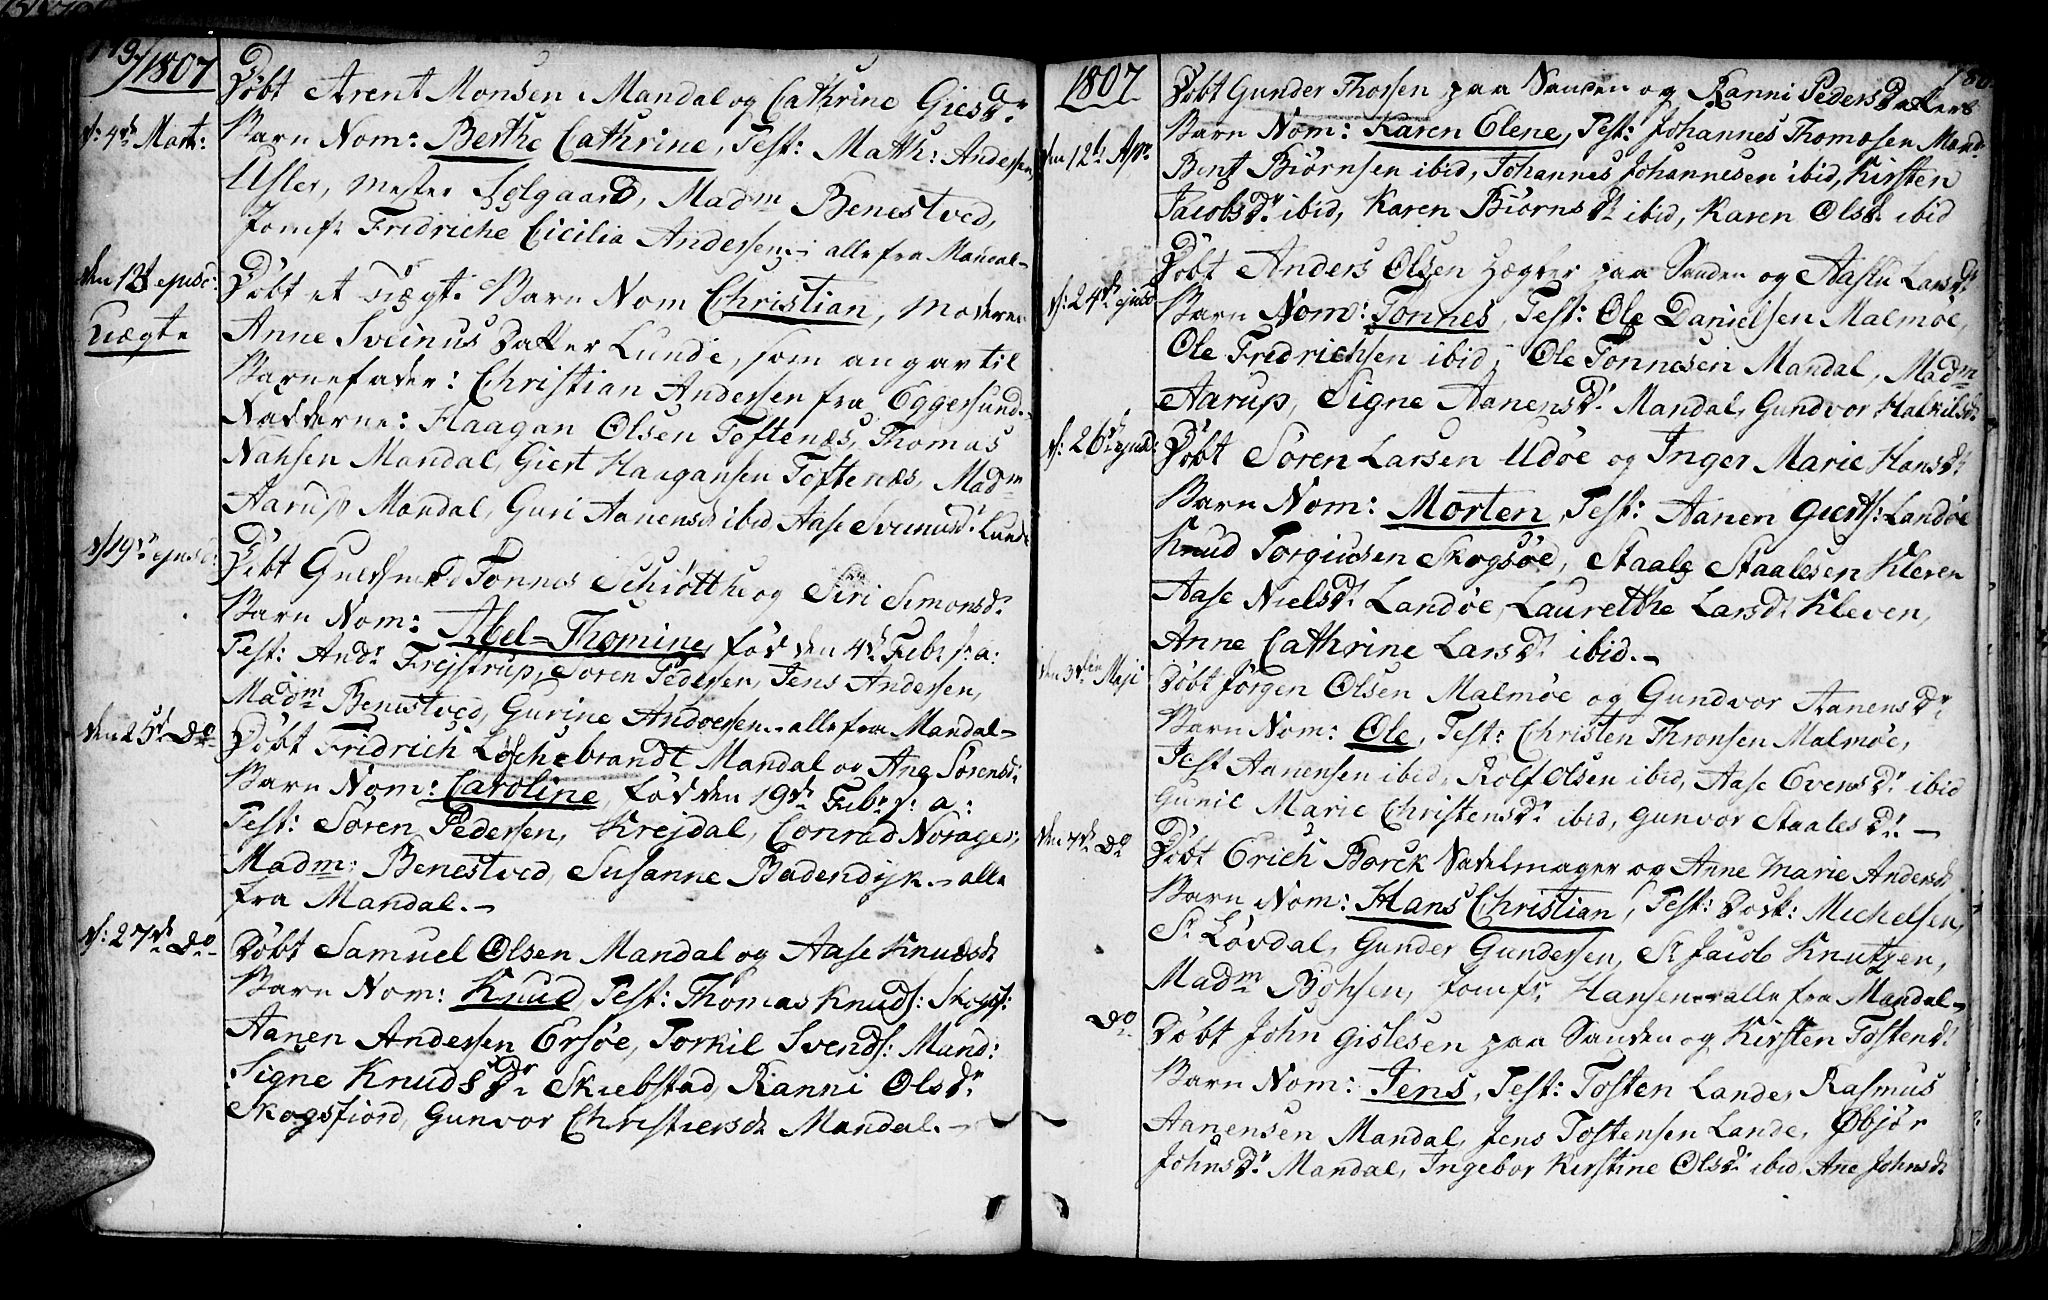 179/1807
Døbt Arent Monsen i Mandal og Cathrine Giesdr
d: 4de Mart:
Barn Nom: Berthe Cathrine, Test: Matth: Andersen,
Usler, mester Solgaard, Madm Benestved,
Jomfr Fridriche Cicilia Andersen - alle fra Mandal -
den 12t ejusd:
Uægte
Døbt et uægte Barn Nom Christian, Moderen
Anne Sveinus Datter Lunde, som angav til
Barnefader: Christian Andersen fra Eggersund.
Fadderne: Haagan Olsen Toftenæs, Thomas
Nahsen Mandal, Giert Haagansen Toftenæs, Madm
Aarup Mandal, Guri Aanensd ibid Aase Sveinusd. Lunde
d/19de ejusd:
Døbt Tonnes Schiøtthe og Siri Simonsdr
Barn Nom: Abel-Thomine, fød den 4d Febr. s: a:
Test: Andr Frejstrup, Søren Pedersen, Jens Andersen,
Madm Benestved, Gurine Andersen - alle fra Mandal -
den 25d Do
Døbt Fridrich Loschebrandt Mandal og Ane Sørensd.
Barn Nom: Caroline, fød den 19de Febr. s: a:
Test: Søren Pedersen, Krejdal, Conrad Norager,
Madm: Benestved, Susanne Badendijk - alle
fra Mandal. -
d: 27de Do
Døbt Samuel Olsen Mandal og Aase Knudsd
Barn Nom: Knud, Test: Thomas Knuds: Skogs:
Aanen Andersen Ersøe, Torkil Svends: Mand:
Signe Knuds Dr Skiebstad, Rianni Olsdr
Skogsfiord, Gunvor Christiersd. Mandal. -
1807
Døbt Gunder Thorsen paa Sanden og Ranni Peders Datters
den 12te Apr.
Barn Nom: Karen Elene, Test: Johannes Thomesen Mand:
Bent Biørnsen ibid, Johannes Johannesen ibid, Kirsten
Jacobsdr ibid, Karen Biørnsdr ibid, Karen Olsd. ibid
d: 24de ejusd
Døbt Anders Olsen paa Sanden og Aasta Larsdr
Barn Nom: Tonnes, Test: Ole Danielsen Malmøe,
Ole Fredrichsen ibid, Ole Tonnesen Mandal, Madm
Aarup, Signe Aanensdr. Mandal, Gundvor Halkilsd.
d: 26de ejusd:
Døbt Søren Larsen Udøe og Inger Marie Hansdr
Barn Nom: Morten, Test: Aanen Gierts: Landøe
Knud Torgiusen Skogsøe, Staale Staalesen Kleven
Aase Nielsdr Landøe, Laurethe Larsdr Kleven,
Anne Cathrine Larsdr ibid. -
den 3die Maji
Døbt Jørgen Olsen Malmøe og Gundvor Aanensdr
Barn Nom: Ole, Test: Christen Thronsen Malmøe,
Aanensen ibid, Rolf Olsen ibid, Aase Evensdr ibid
Gunil Marie Christensdr ibid, Gunvor Staalesdr. -
den 7de Do
Døbt Erich Borck Sadelmager og Anne Marie Andersd
Barn Nom: Hans Christian, Test: Michelsen,
Sr Løvdal, Gunder Gundersen, Sr Jacob Knutzen,
Madm Bøhsen, Jomfr Hansen - alle fra Mandal -
Do
Døbt John Gislesen paa Sanden og Kirsten Tostend.
Barn Nom: Jens, Test: Tosten Lande, Rasmus
Aanensen Mandal, Jens Tostensen Lande, Øbjør
Johnsdr Mandal, Ingebor Kirstine Olsdr ibid, Ane Johnsd.